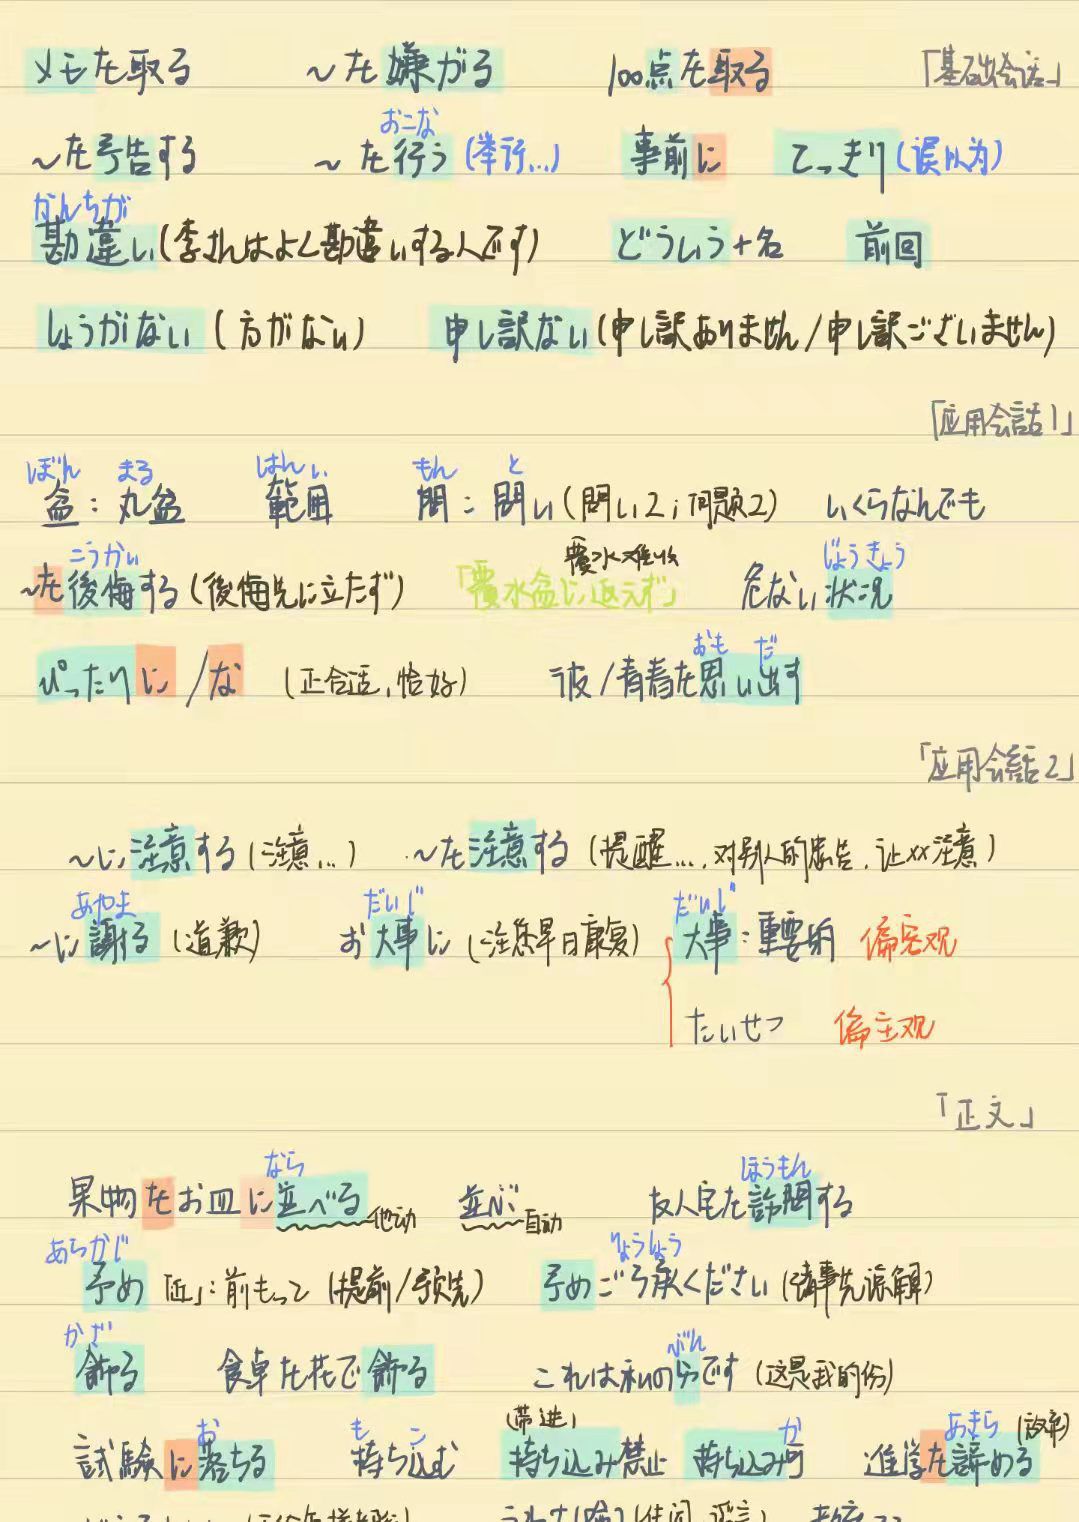 メモを取る　〜を嫌がる　100点を取る　「基础会话」
おこな
〜を予告する　〜を行う(举行...)　事前に　てっきり(误以为)
かんちが
勘違い(李さんはよく勘違いする人です)　どういう+名　前回
しょうがない(方がない)　申し訳ない(申し訳ありません/申し訳ございません)
「应用会話1」
ぼん　まる　はんい　もん　と
盆：丸盆　範囲　問：問い(問い2；問題2)　いくらなんでも
こうかい　覆水难收　じょうきょう
〜を後悔する(後悔先に立たず)　「覆水盆に返えず」　危ない状況
おも　だ
ぴったりに/な　(正合适,恰好)　彼/青春を思い出す
「应用会話2」
〜に注意する(注意...)　〜を注意する(提醒...,对别人的忠告,让xx注意)
あやま　だいじ　だいじ
〜に謝る(道歉)　お大事に(注您早日康复)　大事：重要的　偏客观
たいせつ　偏主观
「正文」
なら　ほうもん
果物をお皿に並べる 他动　並ぶ 自动　友人宅を訪問する
あらかじ　りょうしょう
予め「近」：前もって(提前/预先)　予めご了承ください(请事先谅解)
かざ　ぶん
飾る　食卓を花で飾る　これは私の分です(这是我的份)
お　も　こ　(带进)　か　あきら　(放弃)
試験に落ちる　持ち込む　持ち込み禁止　持ち込み可　進学を諦める